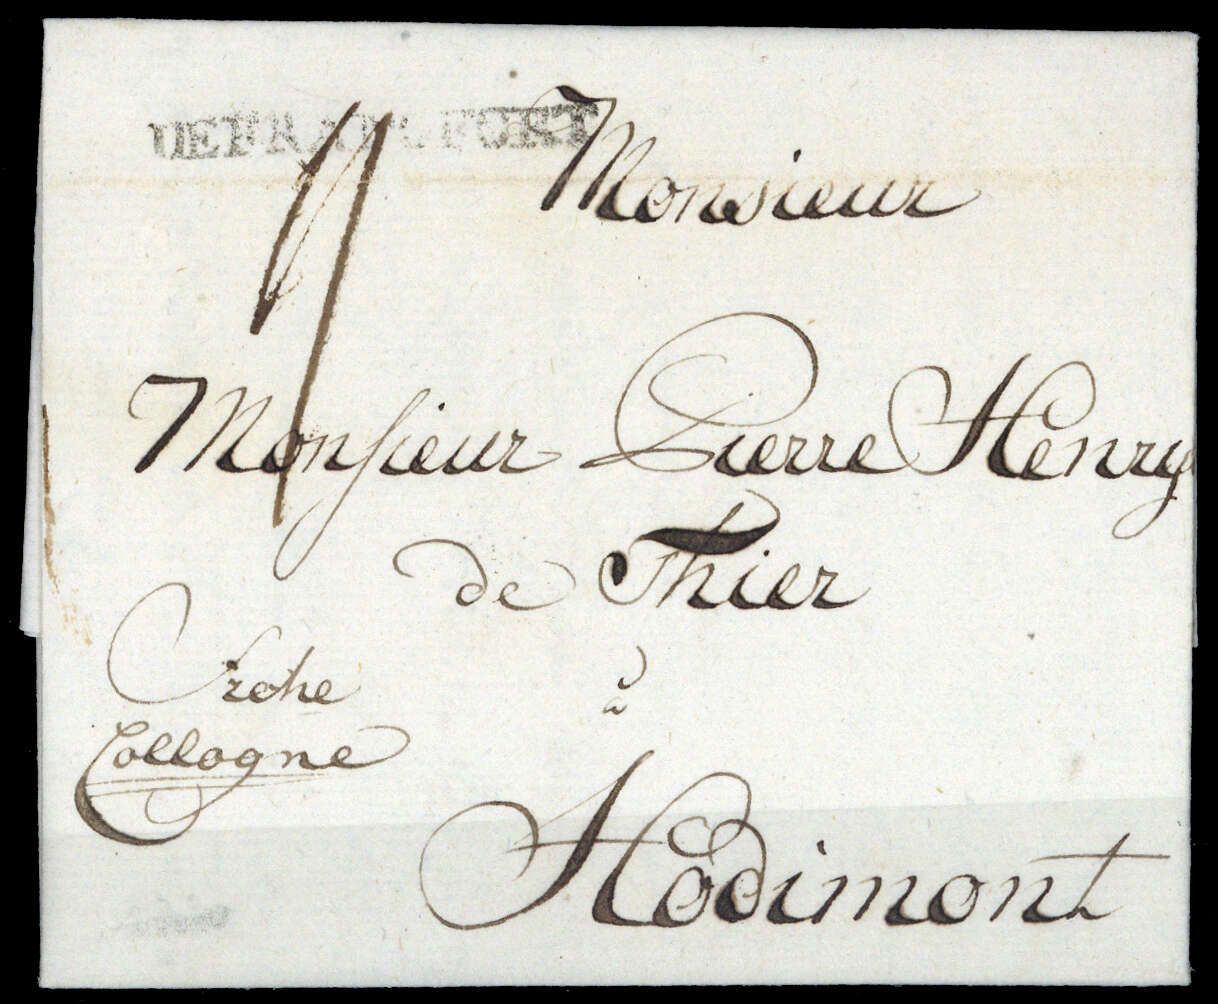 DE FRANCFORT
Monsieur
Monsieur Pierre Henry
de Thier
à
Hodimont
frche
Collogne